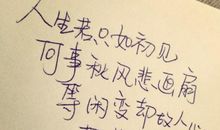 人生若只如初见
何事秋风悲画扇
等闲变却故人心